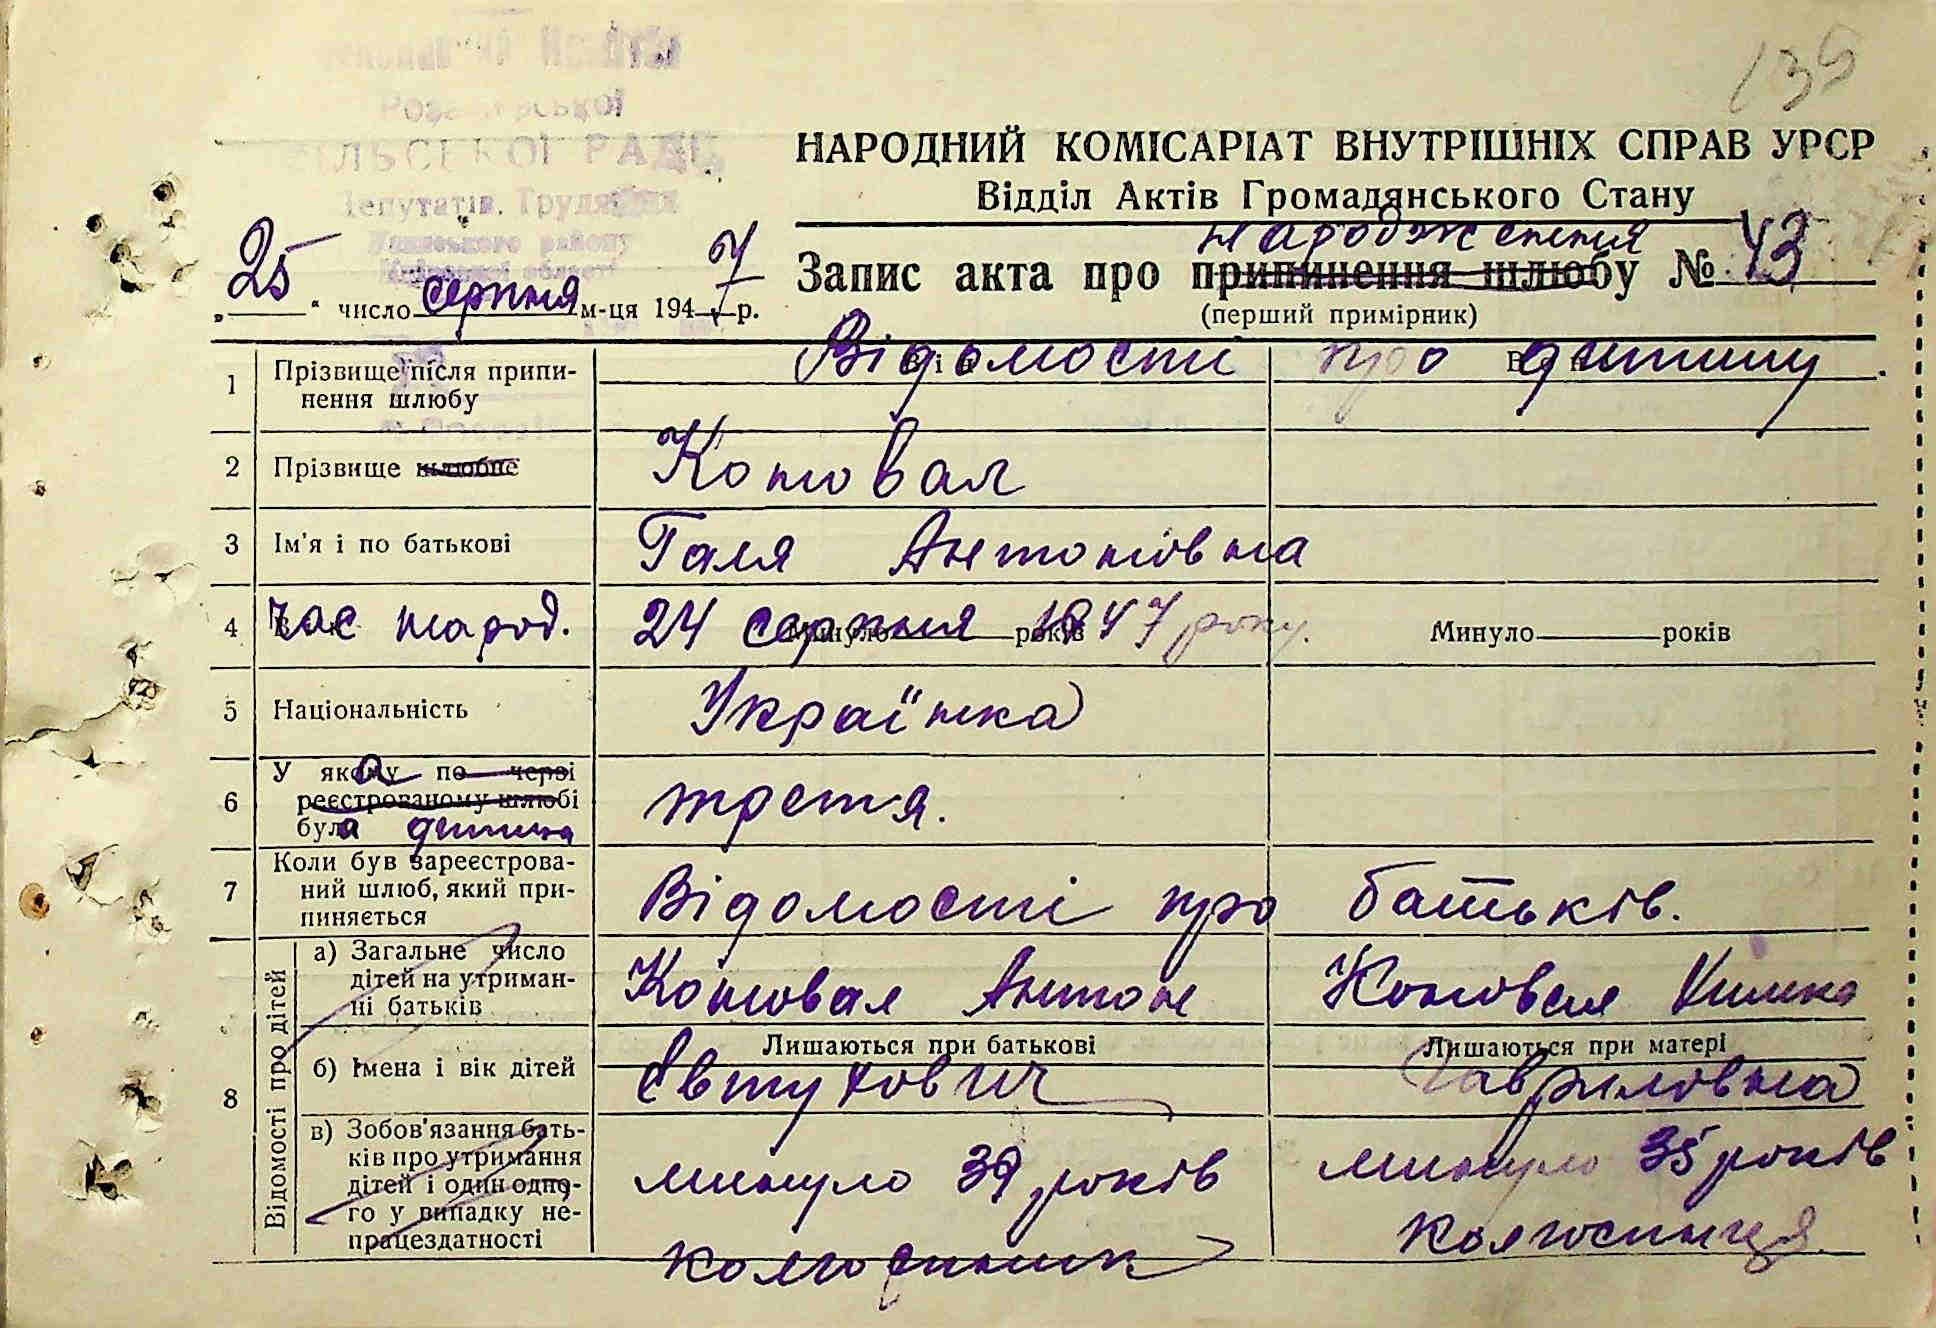 139
СІЛЬСЬКОЇ РАДИ
Депутатів Трудящих
району
області
НАРОДНИЙ КОМІСАРІАТ ВНУТРІШНІХ СПРАВ УРСР
Відділ Актів Громадянського Стану
народження
Запис акта про припинення шлюбу № 43
(перший примірник)
„25“ число серпня м-ця 1947 р.
Відомості про дитину.
1 Прізвище після припи-
нення шлюбу
Він
2 Прізвище шлюбне Коновал
3 Ім'я і по батькові Галя Антонівна
4 Час народ. 24 серпня 1947 року. Минуло років Минуло років
5 Національність Українка
6 У якому по черзі
реєстрованому шлюбі
була дитина
третя.
7 Коли був зареєстрова-
ний шлюб, який при-
пиняється
Відомості про батьків.
8 Відомості про дітей
а) Загальне число
дітей на утриман-
ні батьків
Коновал Антон Коновал
Лишаються при батькові Лишаються при матері
б) Імена і вік дітей Євтухович Гавриловна
в) Зобов'язання бать-
ків про утримання
дітей і один одно-
го у випадку не-
працездатності
минуло 39 років минуло 35 років
колгоспник колгоспниця